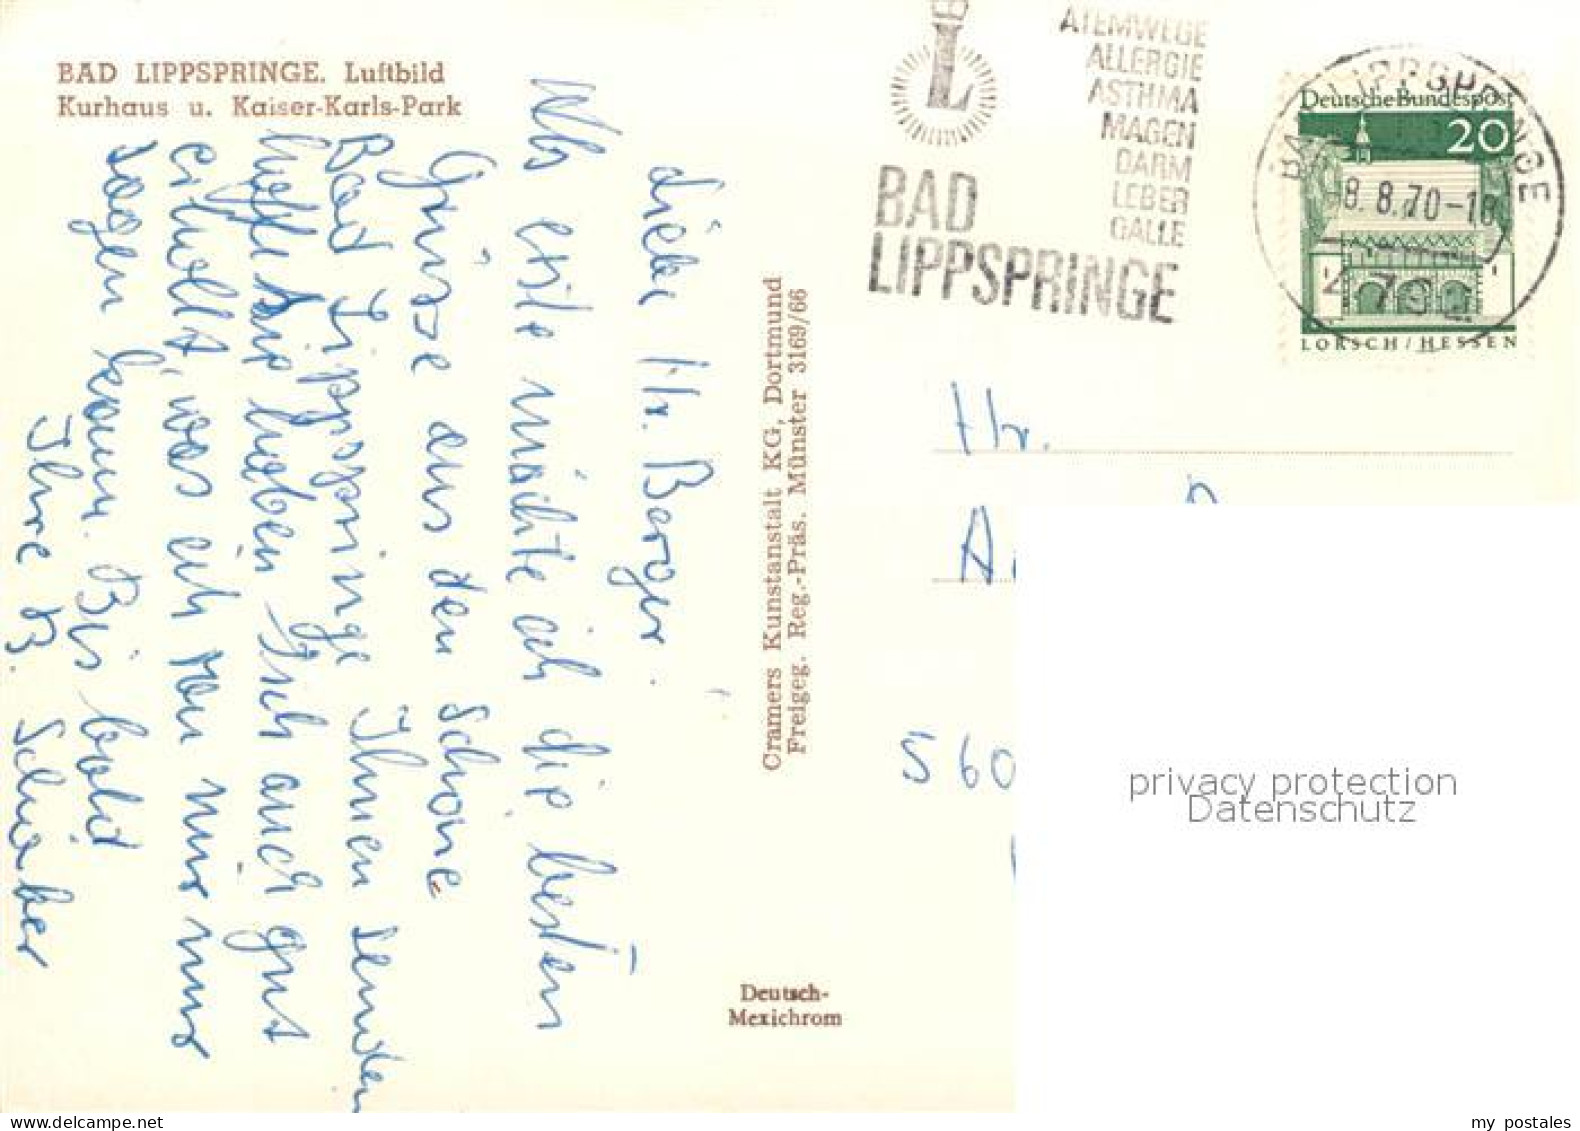 BAD LIPPSPRINGE. Luftbild
Kurhaus u. Kaiser-Karls-Park
Liebe Hr. Berger.
Als erste möchte ich die besten
Grüsse aus den schöne
Bad Lippspringe Ihnen senden
hoffe Sie haben sich auch gut
erhollt, was ich von mir nur
sagen kann. Bis bald
Ihre B.
Cramers Kunstanstalt KG, Dortmund
Freigeg. Reg.-Präs. Münster 3169/66
Deutsch-
Mexichrom
L
BAD
LIPPSPRINGE
ATEMWEGE
ALLERGIE
ASTHMA
MAGEN
DARM
LEBER
GALLE
Deutsche Bundespost
20
LORSCH/HESSEN
BAD LIPPSPRINGE
8.8.70-18
Hr.
A
560
privacy protection
Datenschutz
my postales